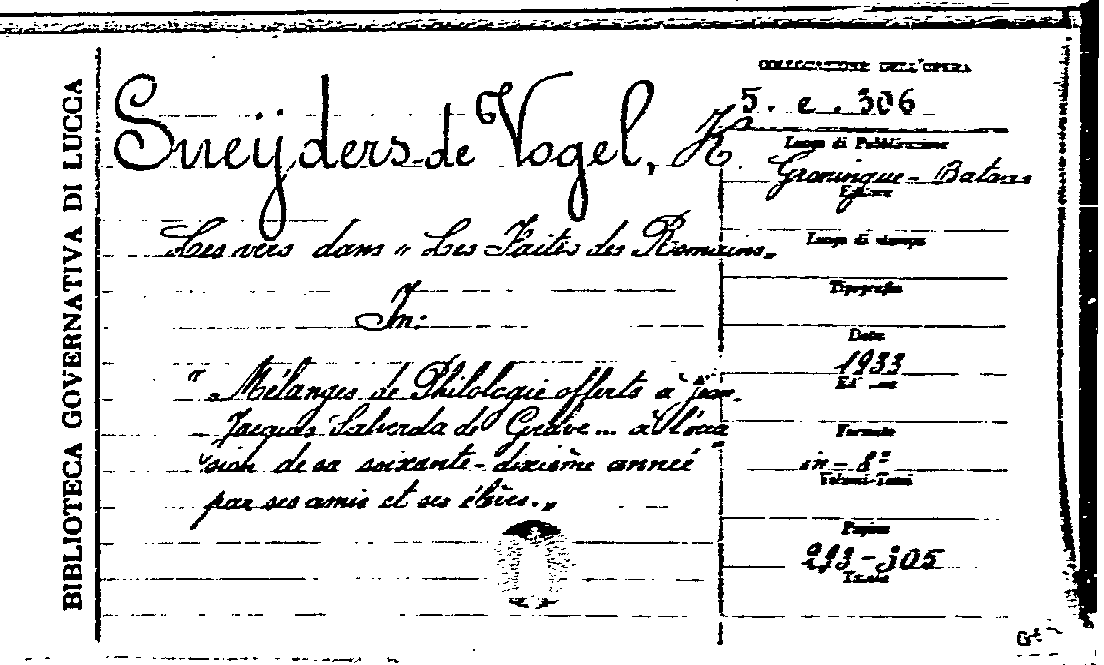 BIBLIOTECA GOVERNATIVA DI LUCCA
Sneyders de Vogel, K.
Les vers dans „ Les Faites des Romains.„
In:
„ Mélanges de Philologie offerts à Jean-
Jacques Salverda de Grave... à l'occa
sion de sa soixante-dixième année
par ses amis et ses élèves.„
COLLOCAZIONE DELL'OPERA
5. e. 306
Luogo di Pubblicazione
Groningue - Batavia
Editore
Luogo di stampa
Tipografia
Data
1933
Formato
in-8º
Volumi-Tomi
Pagine
-305